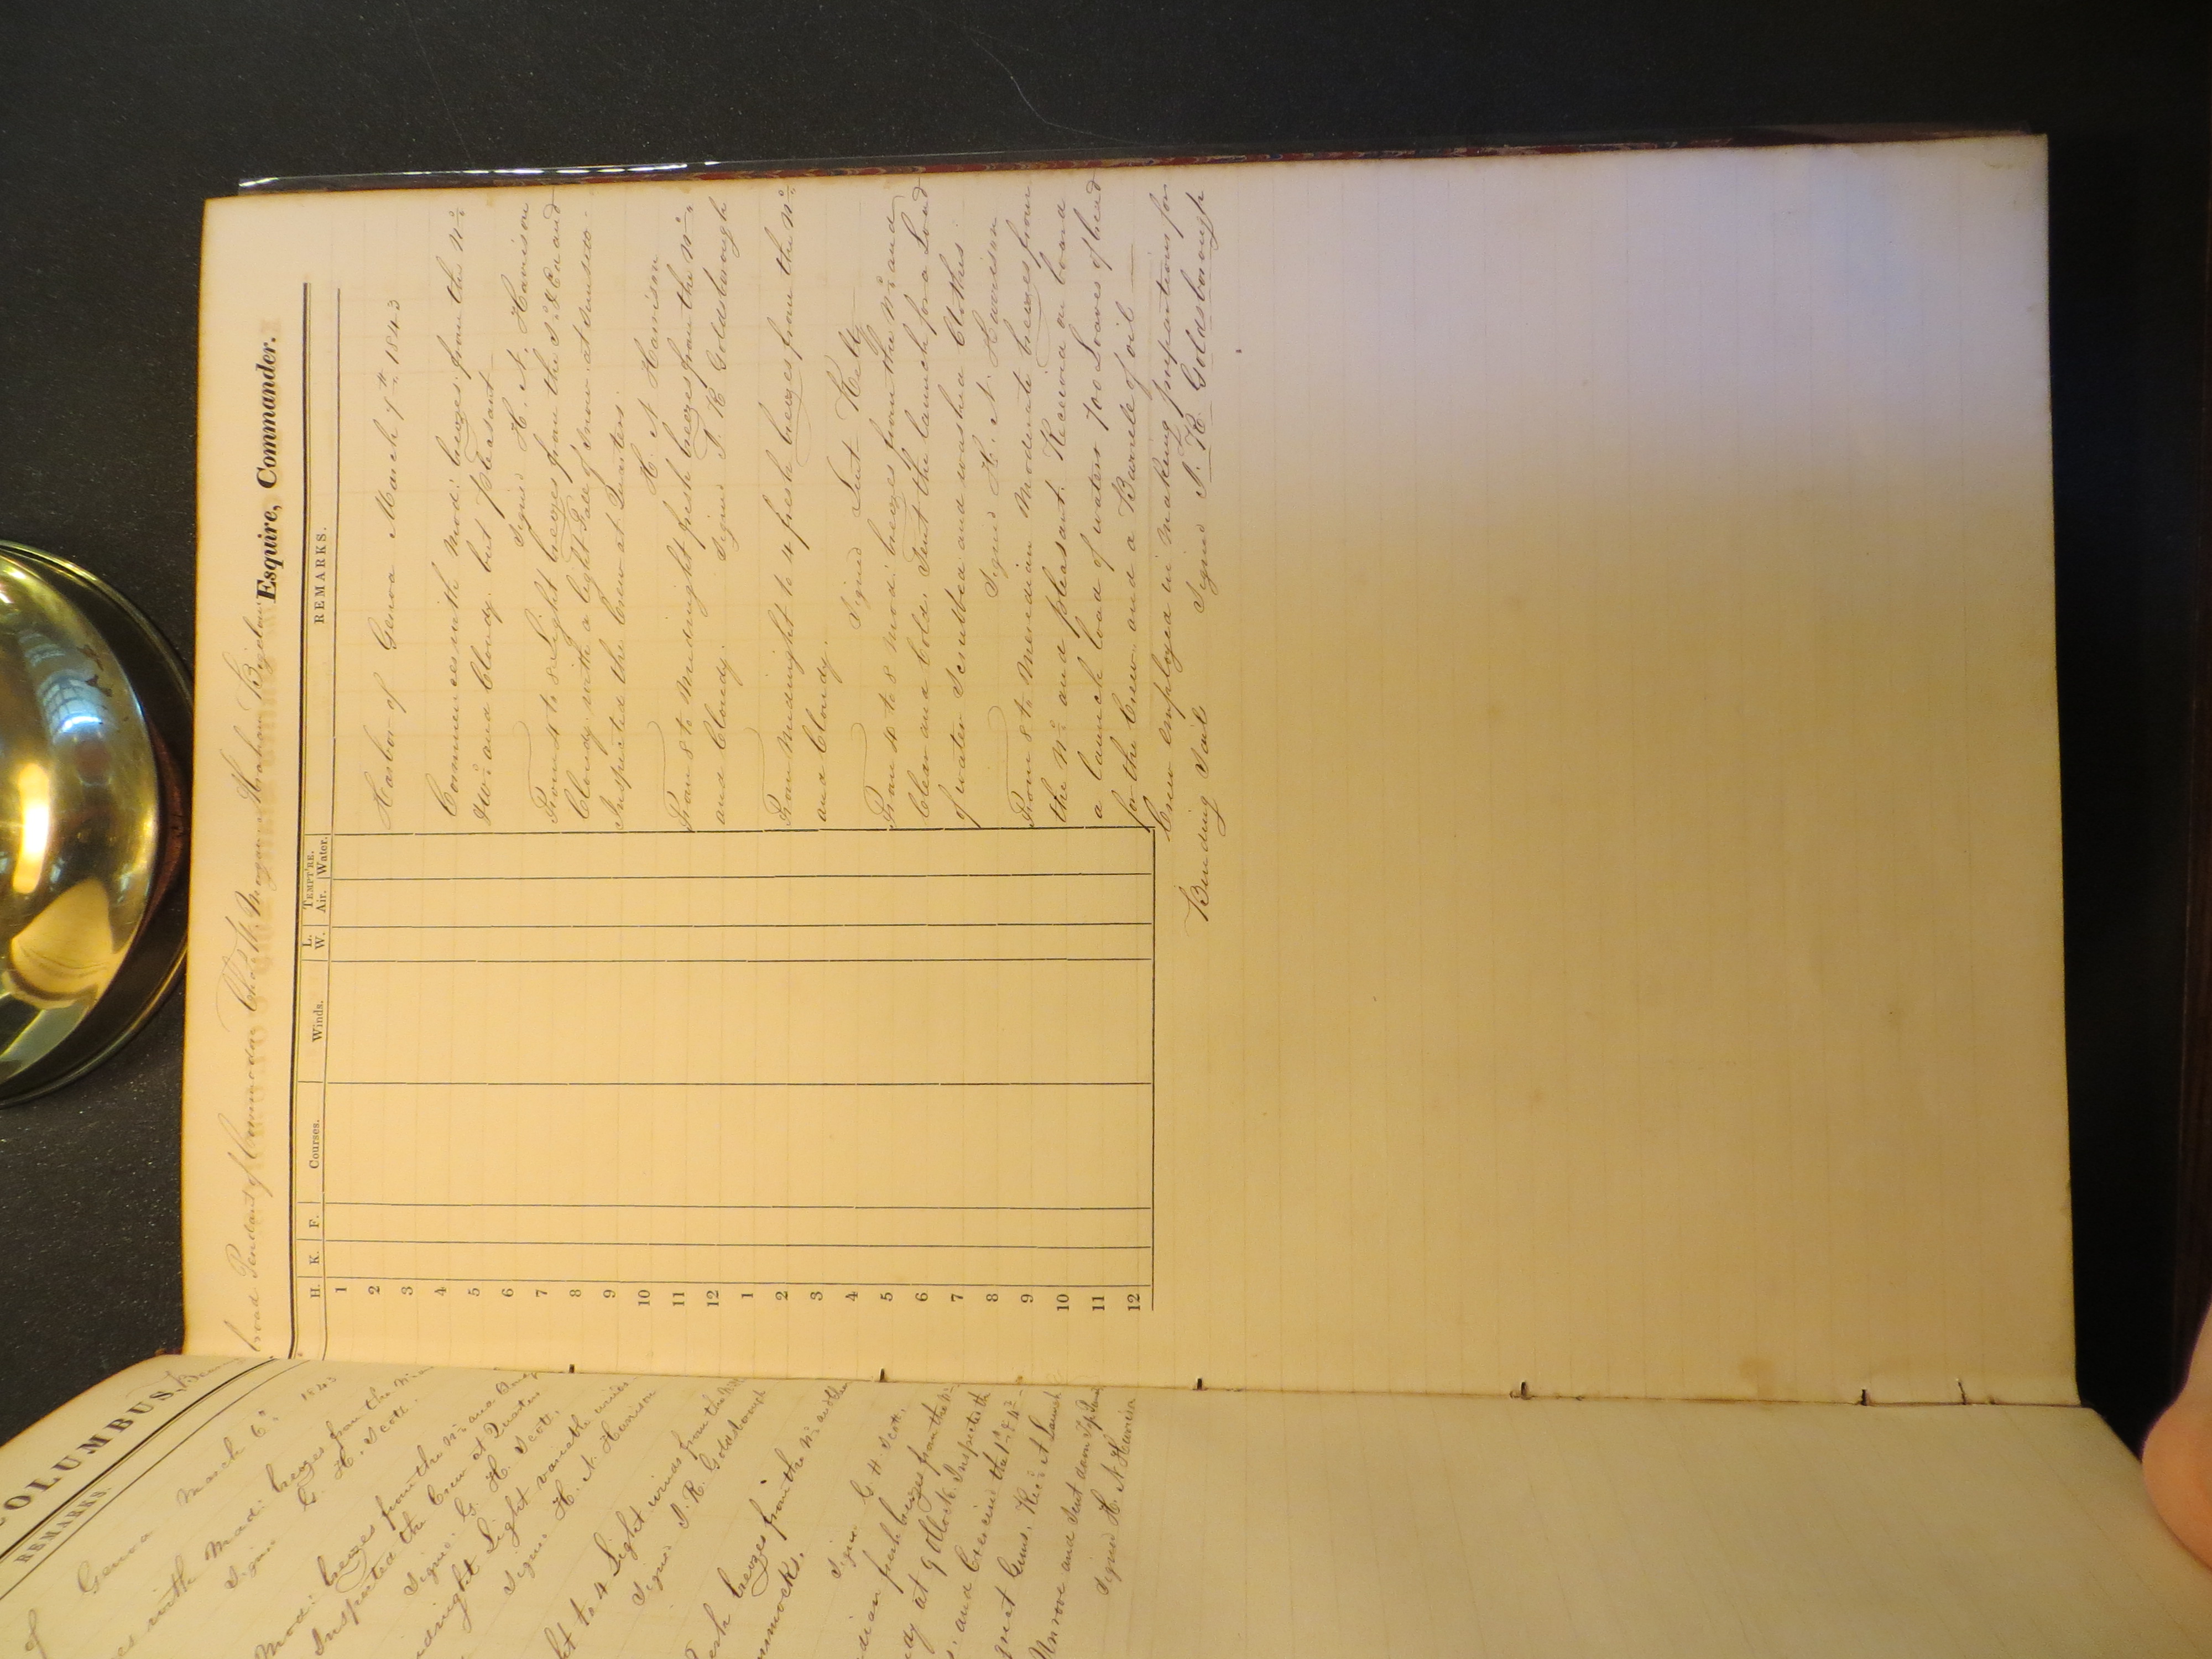 OLUMBUS,
REMARKS.
Genoa March 6th 1843
es with Mod: breezes from the
Signed G. H. Scott.
Mod: breezes from the Nd and
Inspected the Crew at Quarters
Signed G. H. Scott.
dnight Light variable winds
Signed H. N. Harrison
ht to 4 Light winds from the
Signed J. R. Goldsborough
esh breezes from the Nd and
mmocks.
Signed G. H. Scott.
dian fresh breezes from the
dy at 9 Oclock Inspected the
and Exercised the 1st
great Guns. Recd A Launch
Unrove and Sent down
Signed H. N. Harrison
broad Pendant of Commodore Chas W. Morgan Abraham Bigelow
Esquire, Commander.
H. K. F. Courses. Winds. L. W. TEMPT'RE. Air. Water. REMARKS.
1
2 Harbor of Genoa March 7th 1843
3
4 Commences with Mod: breezes from the Nd
5 & Wd and Cloudy but pleasant
6 Signed H. N. Harrison
7 From 4 to 8 Light breezes from the Sd & Ed and
8 Cloudy with a light Fall of snow at Sunset
9 Inspected the Crew at Quarters.
10 H. N. Harrison
11 From 8 to Midnight fresh breezes from the Nd
12 and Cloudy. Signed J. R. Goldsborough
1
2 From Midnight to 4 fresh breezes from the Nd
3 and Cloudy.
4 Signed Lieut
5 From 4 to 8 Mod: breezes from the Nd and
6 Clear and Cold. Sent the launch for a Load
7 of water Scrubbed and washed Clothes
8 Signed H. N. Harrison
9 From 8 to Meridian Moderate breezes from
10 the Nd and pleasant. Received on board
11 a launch load of water 700 Loaves of bread
12 for the Crew. and a Barrele of oil
Crew employed in making preparations for
Bending Sail Signed J. R. Goldsborough